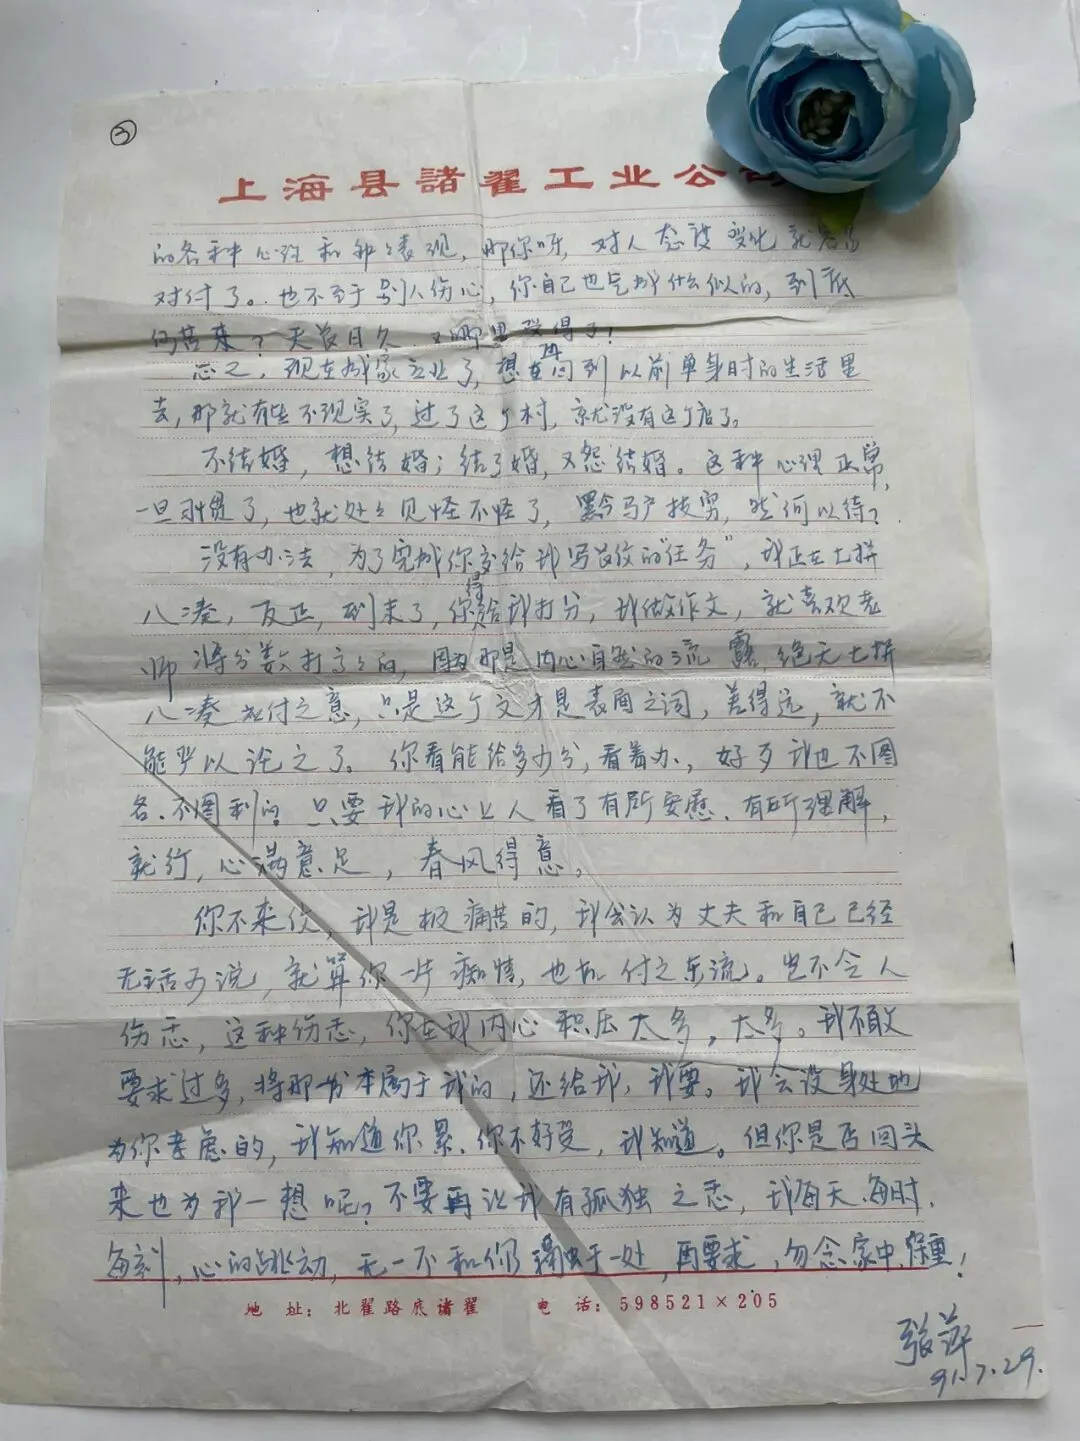 ③
上海县諸翟工业公司
的各种心理和那些表现，哪你呀，对人态度变化就容易
对付了。也不至于别人伤心，你自己也气成什么似的，到底
何苦来？天长日久，又哪里受得了！
总之，现在成家立业了，想再回到以前单身时的生活里
去，那就有些不现实了，过了这个村，就没有这个店了。
不结婚，想结婚；结了婚，又怨结婚。这种心理正常，
一旦习惯了，也就处处见怪不怪了，黔驴技穷，能何以待？
没有办法，为了完成你交给我写长信的“任务”，我正在七拼
八凑，反正，到末了，你得给我打分，我做作文，就喜欢老
师将分数打高高的，因为那是内心自然的流露，绝无七拼
八凑应付之意，只是这个文才是表面之词，差得远，就不
能严以论之了。你看能给多少分，看着办，好歹我也不图
名、不图利的。只要我的心上人看了有所安慰、有所理解，
就行，心满意足，春风得意。
你不来信，我是极痛苦的，我会认为丈夫和自己已经
无话可说，就算你一片痴情，也才付之东流。岂不令人
伤悲，这种伤悲，你在我内心积压太多，太多。我不敢
要求过多，将那一份本属于我的，还给我，我要。我会设身处地
为你考虑的，我知道你累、你不好受，我知道。但你是否回头
来也为我一想呢？不要再让我有孤独之悲，我每天、每时、
每刻，心的跳动，无一不和你融于一处，再要求，勿念家中，保重！
地 址：北翟路底諸翟 电 话：598521×205
张萍
91.7.29.